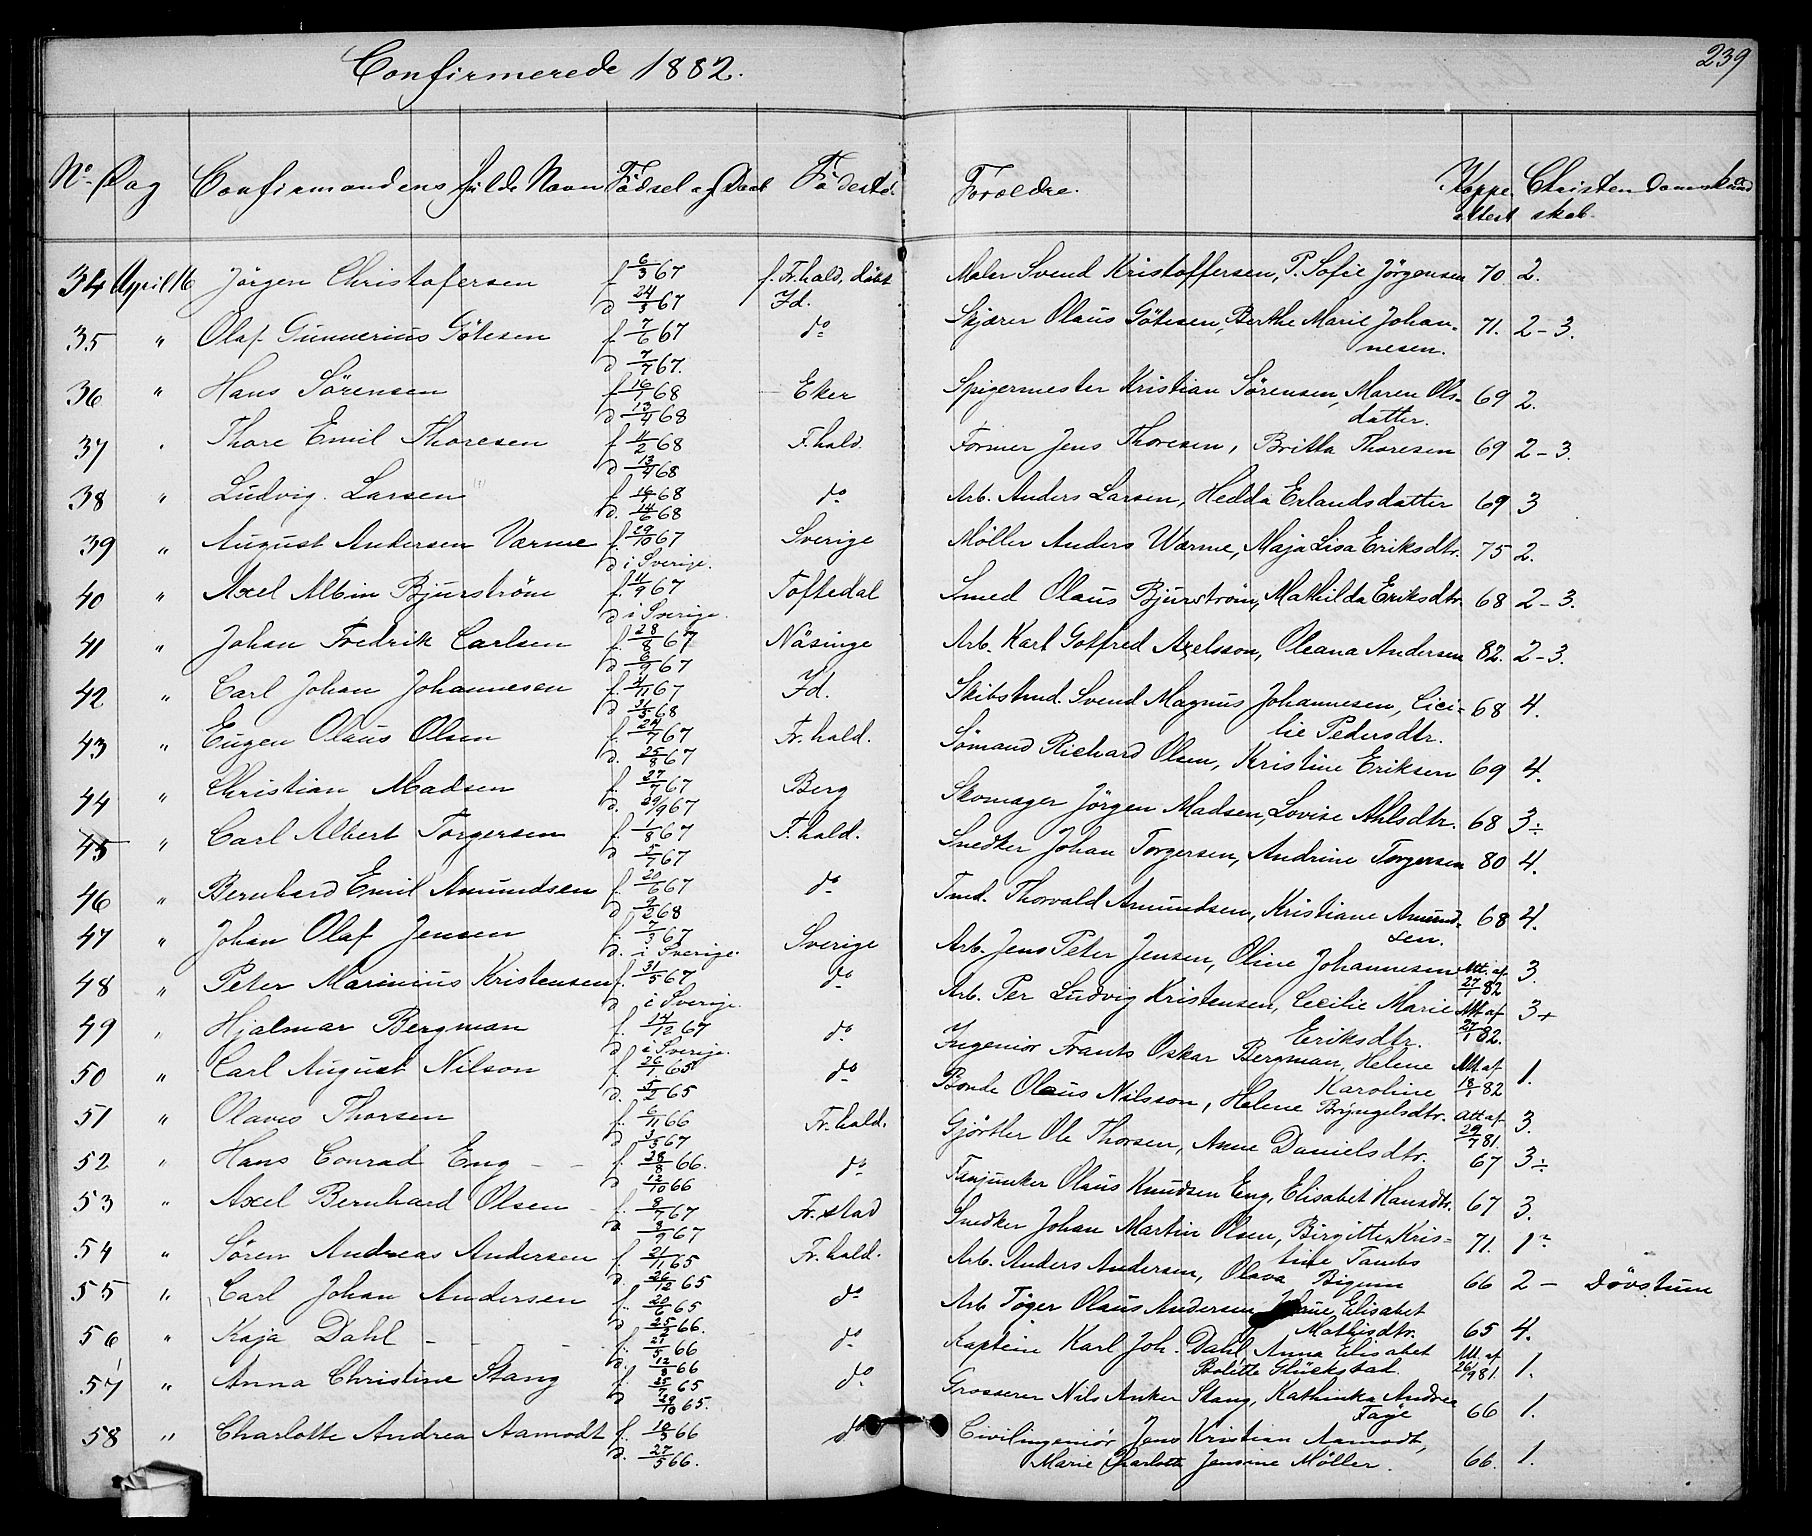 Confirmerede 1882.
239
No. Dag Confirmandens fulde Navn Födsel og Daab Födested. Forældre. Koppe attest Christendomskundskab.
34 April 16 Jörgen Christofersen f. 6/3 67 d. 24/3 67 f. Fr.hald, döbt Id. Maler Svend Kristoffersen, P. Sofie Jörgensen 70 2.
35 " Olaf Gunnerius Götesen f. 7/6 67 d. 7/7 67. do Skjærer Olaus Götesen, Berthe Marie Johannesen. 71. 2-3.
36 " Hans Sörensen f. 16/1 68 d. 13/4 68 Eker Spigermester Kristian Sörensen, Maren Olsdatter. 69 2.
37 " Thore Emil Thoresen f. 11/2 68 d. 13/4 68 F.hald. Former Jens Thoresen, Britta Thoresen 69 2-3.
38 " Ludvig Larsen f. 16/1 68 d. 14/6 68 do Arb. Anders Larsen, Hedda Erlandsdatter 69 3
39 " August Andersen Værme f. 29/10 67 d. i Sverige. Sverige Möller Anders Wærme, Maja Lisa Eriksdtr. 75 2.
40 " Axel Albin Bjurström f. 11/9 67 d i Sverige. Toftedal Smed Olaus Bjurström, Mathilda Eriksdtr. 68 2-3.
41 " Johan Fredrik Carlsen f. 28/8 67 d 6/9 67 Näsinge Arb. Karl Gotfred Axelsson, Oleana Andersen 82. 2-3.
42 " Carl Johan Johannesen f. 4/11 67 d. 31/5 68 Id. Skibstmd. Svend Magnus Johannesen, Cicilie Pedersdtr. 68 4.
43 " Eugen Olaus Olsen f. 24/7 67 d. 25/8 67 Fr.hald. Sömand Richard Olsen, Kristine Eriksen 69 4.
44 " Christian Madsen f. 27/7 67 d. 29/9 67 Berg Skomager Jörgen Madsen, Lovise Ahlsdtr. 68 3÷
45 " Carl Albert Torgersen f. 1/8 67 d 5/7 67 F.hald. Snedker Johan Torgersen, Andrine Torgersen 80 4.
46 " Bernhard Emil Amundsen f. 20/6 67 d 9/2 68 do Tmd. Thorvald Amundsen, Kristiane Amundsen. 68 4.
47 " Johan Olaf Jensen f. 7/3 67 d. i Sverige. Sverige Arb. Jens Peter Jensen, Oline Johannesen Att. af 27/1 82 3.
48 " Peter Marinius Kristensen f. 31/5 67 d i Sverige. do Arb. Per Ludvig Kristensen, Cecilie Marie Eriksdtr. Att af 27/1 82. 3+
49 " Hjalmar Bergman f. 14/12 67 d. i Sverige. do Ingeniör Frants Oskar Bergman, Helene Karoline Att. af 18/1 82 1.
50 " Carl August Nilson f. 26/1 65 d. 5/2 65 do Bonde Olaus Nilsson, Helene Bryngelsdtr. Att af 29/7 81. 3.
51 " Olaves Thorsen f. 6/11 66 d. 3/5 67 Fr.hald. Gjörtler Ole Thorsen, Anne Danielsdtr. 67 3÷
52 " Hans Conrad Eng f. 28/8 66. d. 12/10 66 do Olaus Knudsen Eng, Elisabet Hansdtr. 67 3.
53 " Axel Bernhard Olsen f. 9/7 67 d 8/9 67 Fr.stad Snedker Johan Martin Olsen, Birgitte Kristine 71. 1
54 " Sören Andreas Andersen f. 21/11 65 d. 26/12 65 Fr.hald. Arb. Anders Andersen, Olava Bigum 66 2 - Dövstum
55 " Carl Johan Andersen f. 20/6 65 d. 25/2 66. do Arb. Töger Olaus Andersen, Elisabet Mathisdtr. 65 4.
56 " Kaja Dahl f. 21/5 66 d. 12/8 66 do Kaptein Karl Joh. Dahl, Anna Elisabet Bolette Glückstad. Att. af 26/9 81. 1.
57 " Anna Christine Stang f. 25/7 65 d 29/10 65. do Grosserer Nils Anker Stang, Kathinka Andrea Faye 66 1.
58 " Charlotte Andrea Aamodt f. 10/3 66 d. 27/5 66. do Civilingeniör Jens Kristian Aamodt, Marie Charlotte Jensine Möller. 66. 1.